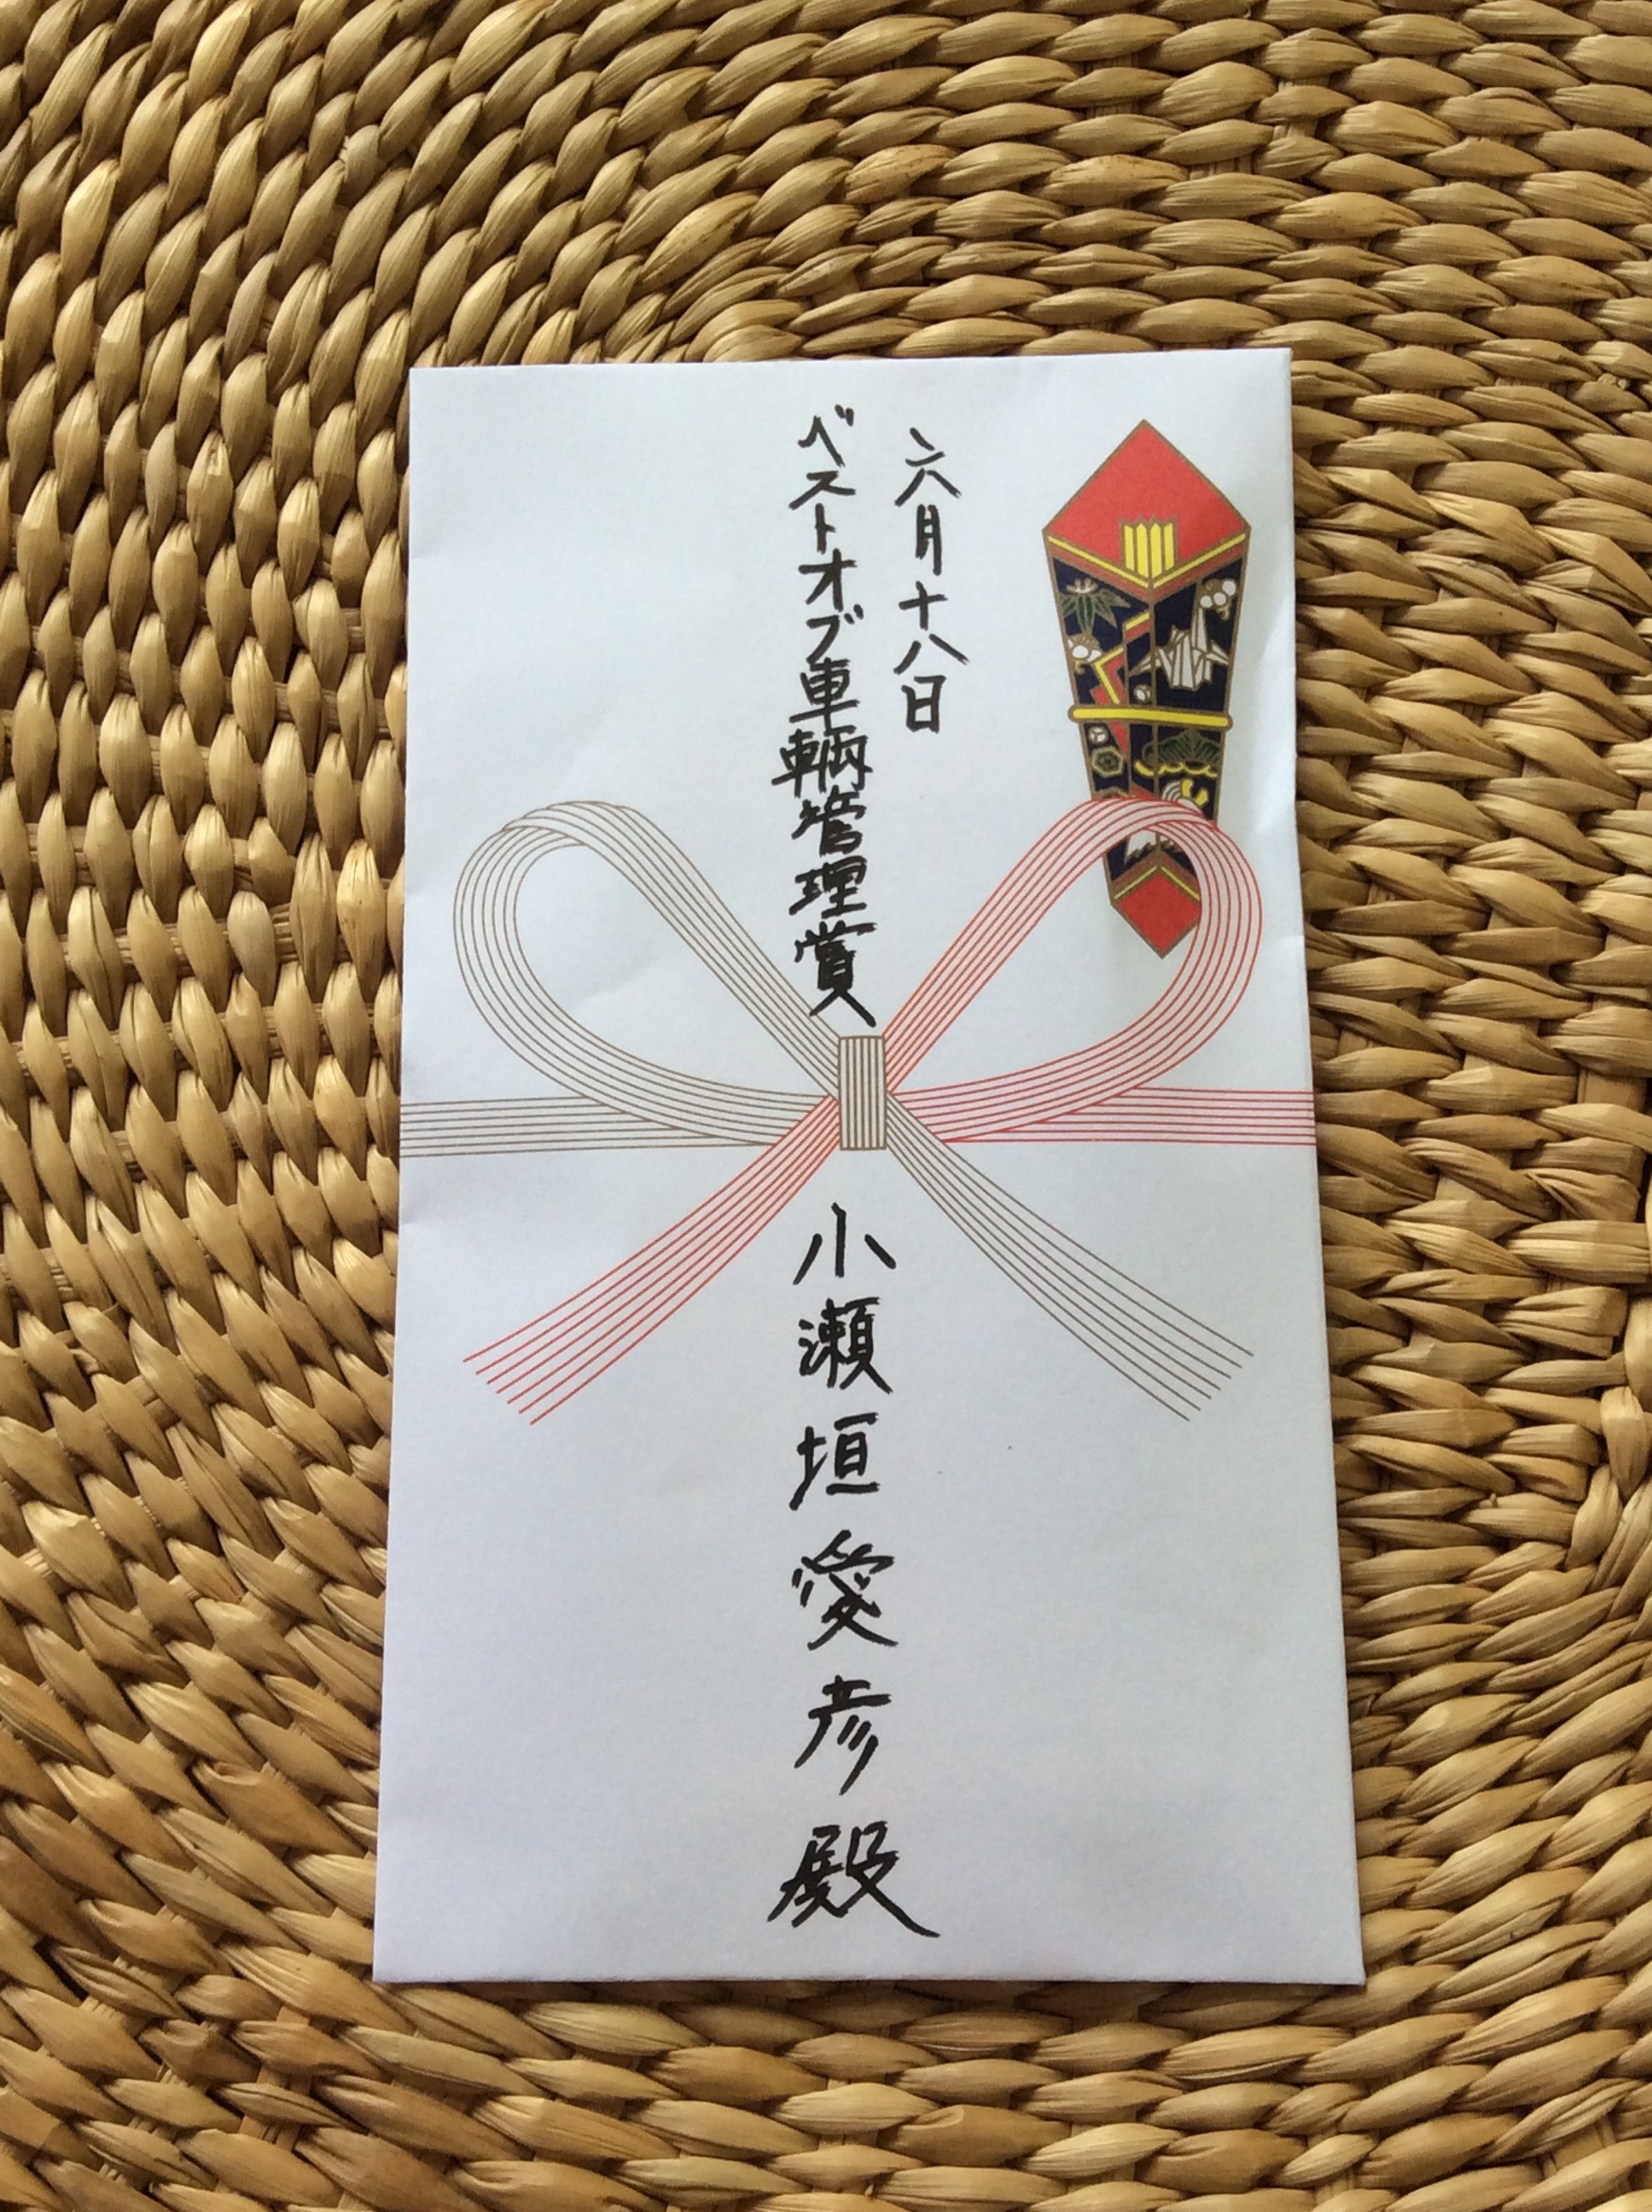 六月十八日
ベストオブ車輌管理賞
小瀬垣愛彦殿